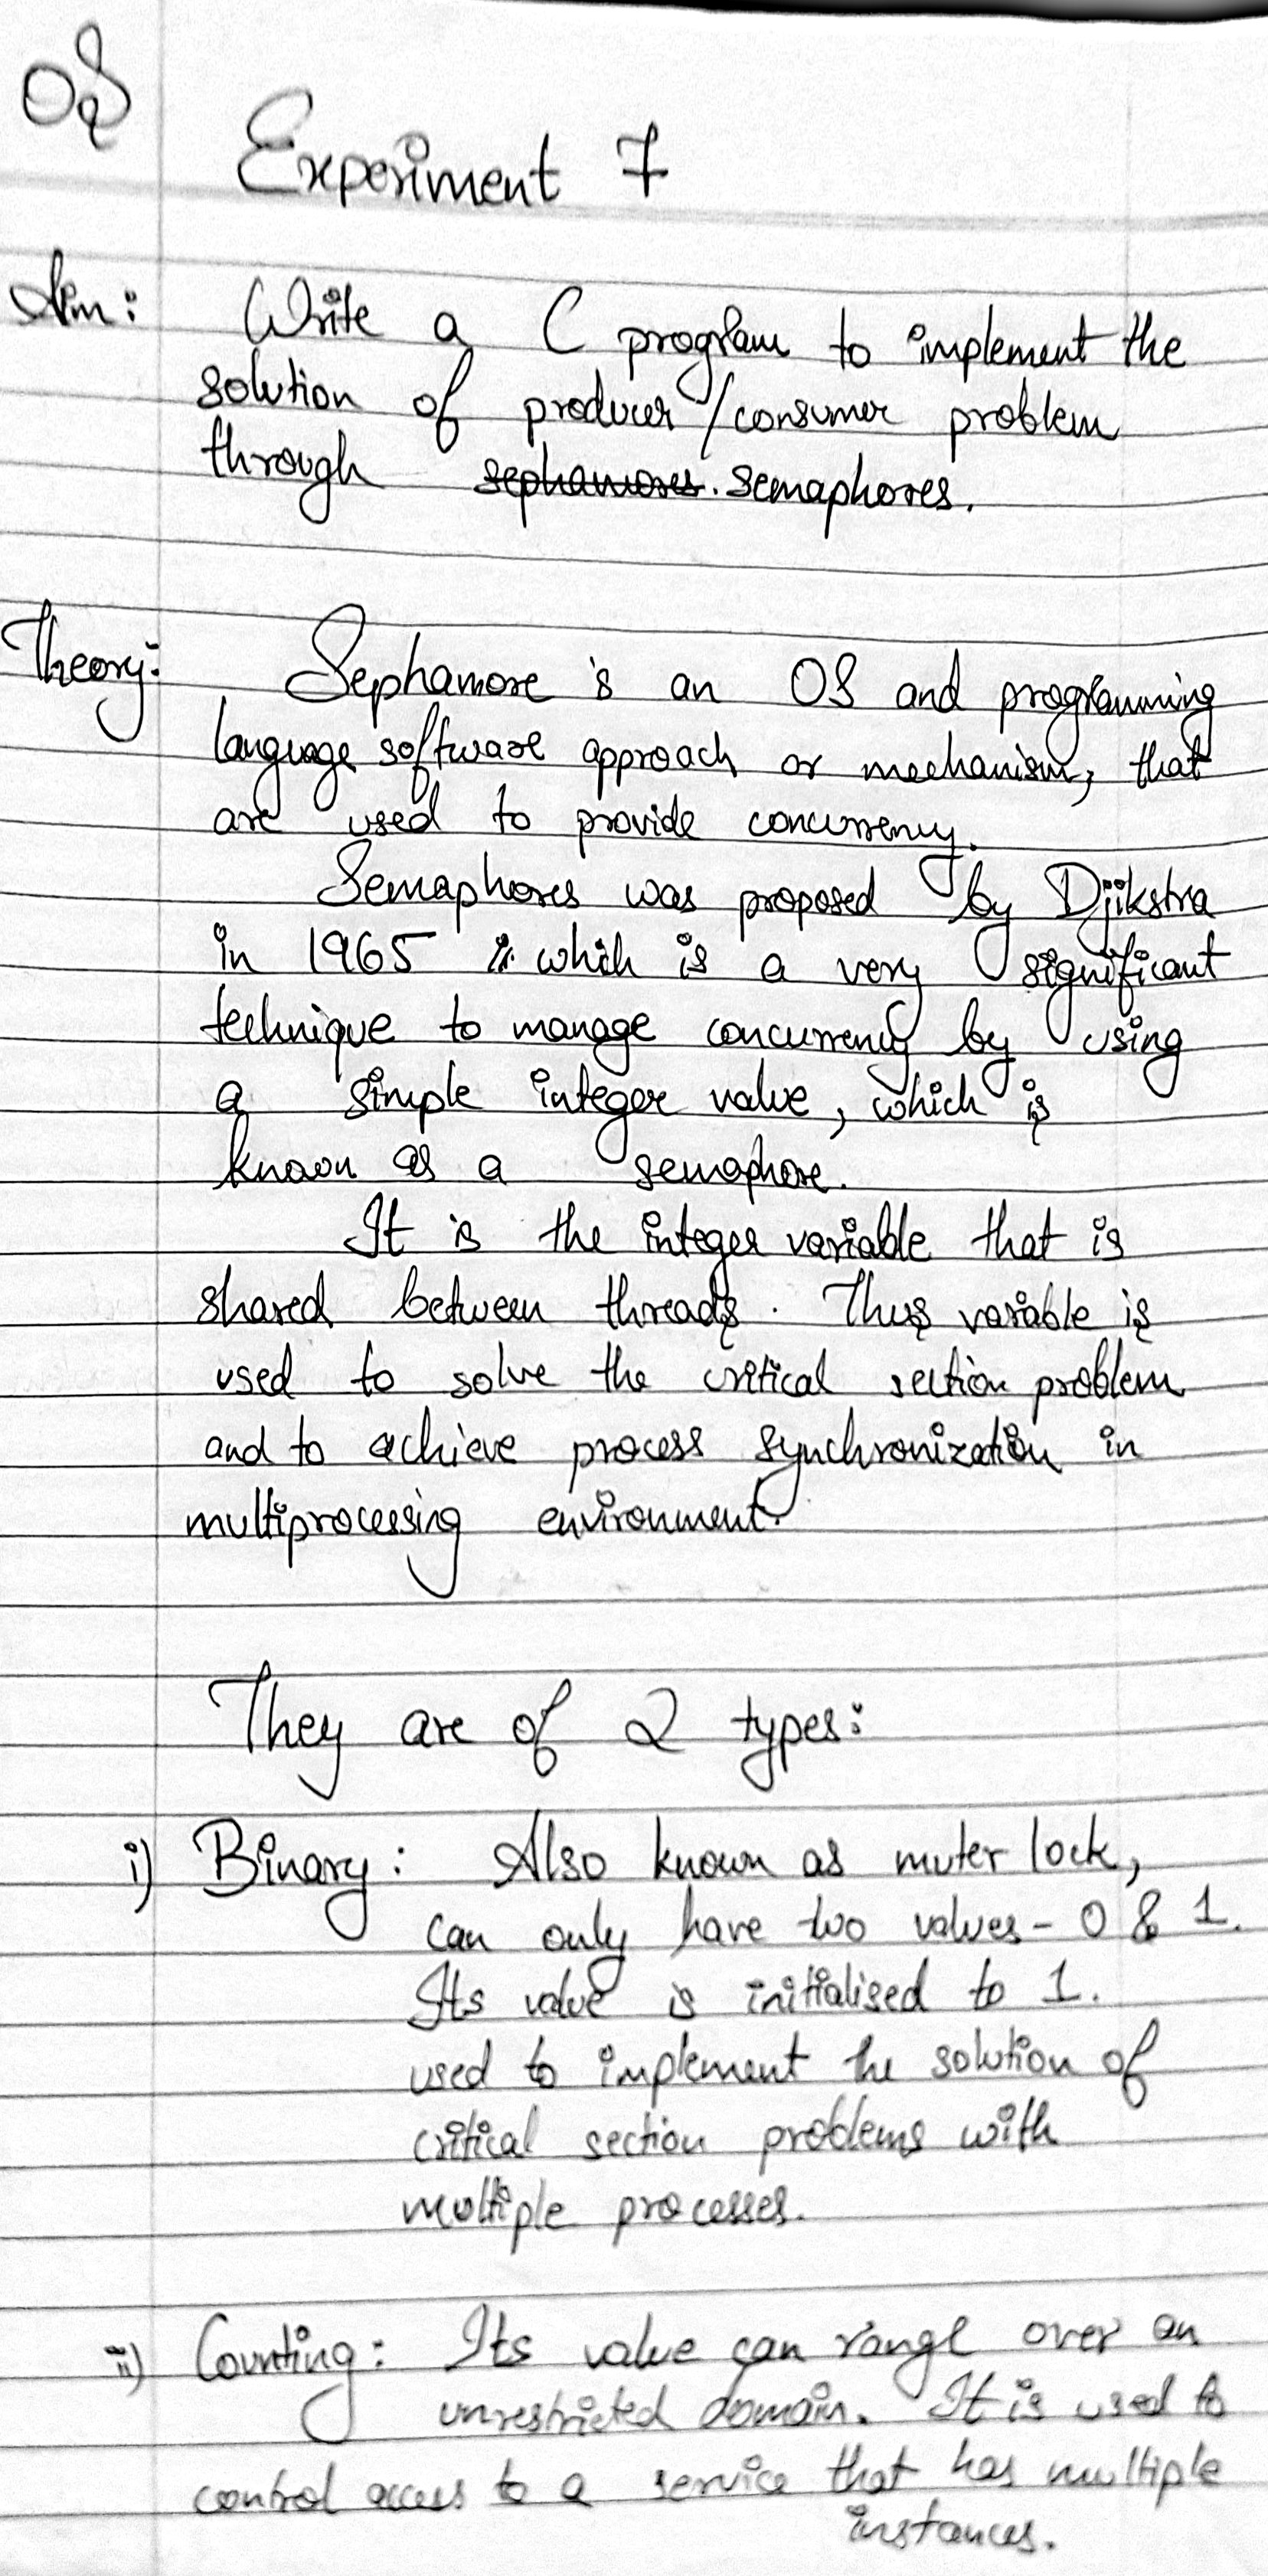 OS
Experiment 7
Aim: Write a C program to implement the
solution of producer/consumer problem
through sephamores. semaphores.
Theory: Sephamore is an OS and programming
language software approach or mechanism, that
are used to provide concurrency.
Semaphores was proposed by Djikstra
in 1965 which is a very significant
technique to manage concurrency by using
a simple integer value, which is
known as a semaphore.
It is the integer variable that is
shared between threads. Thus variable is
used to solve the critical section problem
and to achieve process synchronization in
multiprocessing environment.
They are of 2 types:
i) Binary: Also known as muter lock,
can only have two values - 0 & 1.
Its value is initialised to 1.
used to implement the solution of
critical section problems with
multiple processes.
ii) Counting: Its value can range over an
unrestricted domain. It is used to
control access to a service that has multiple
instances.